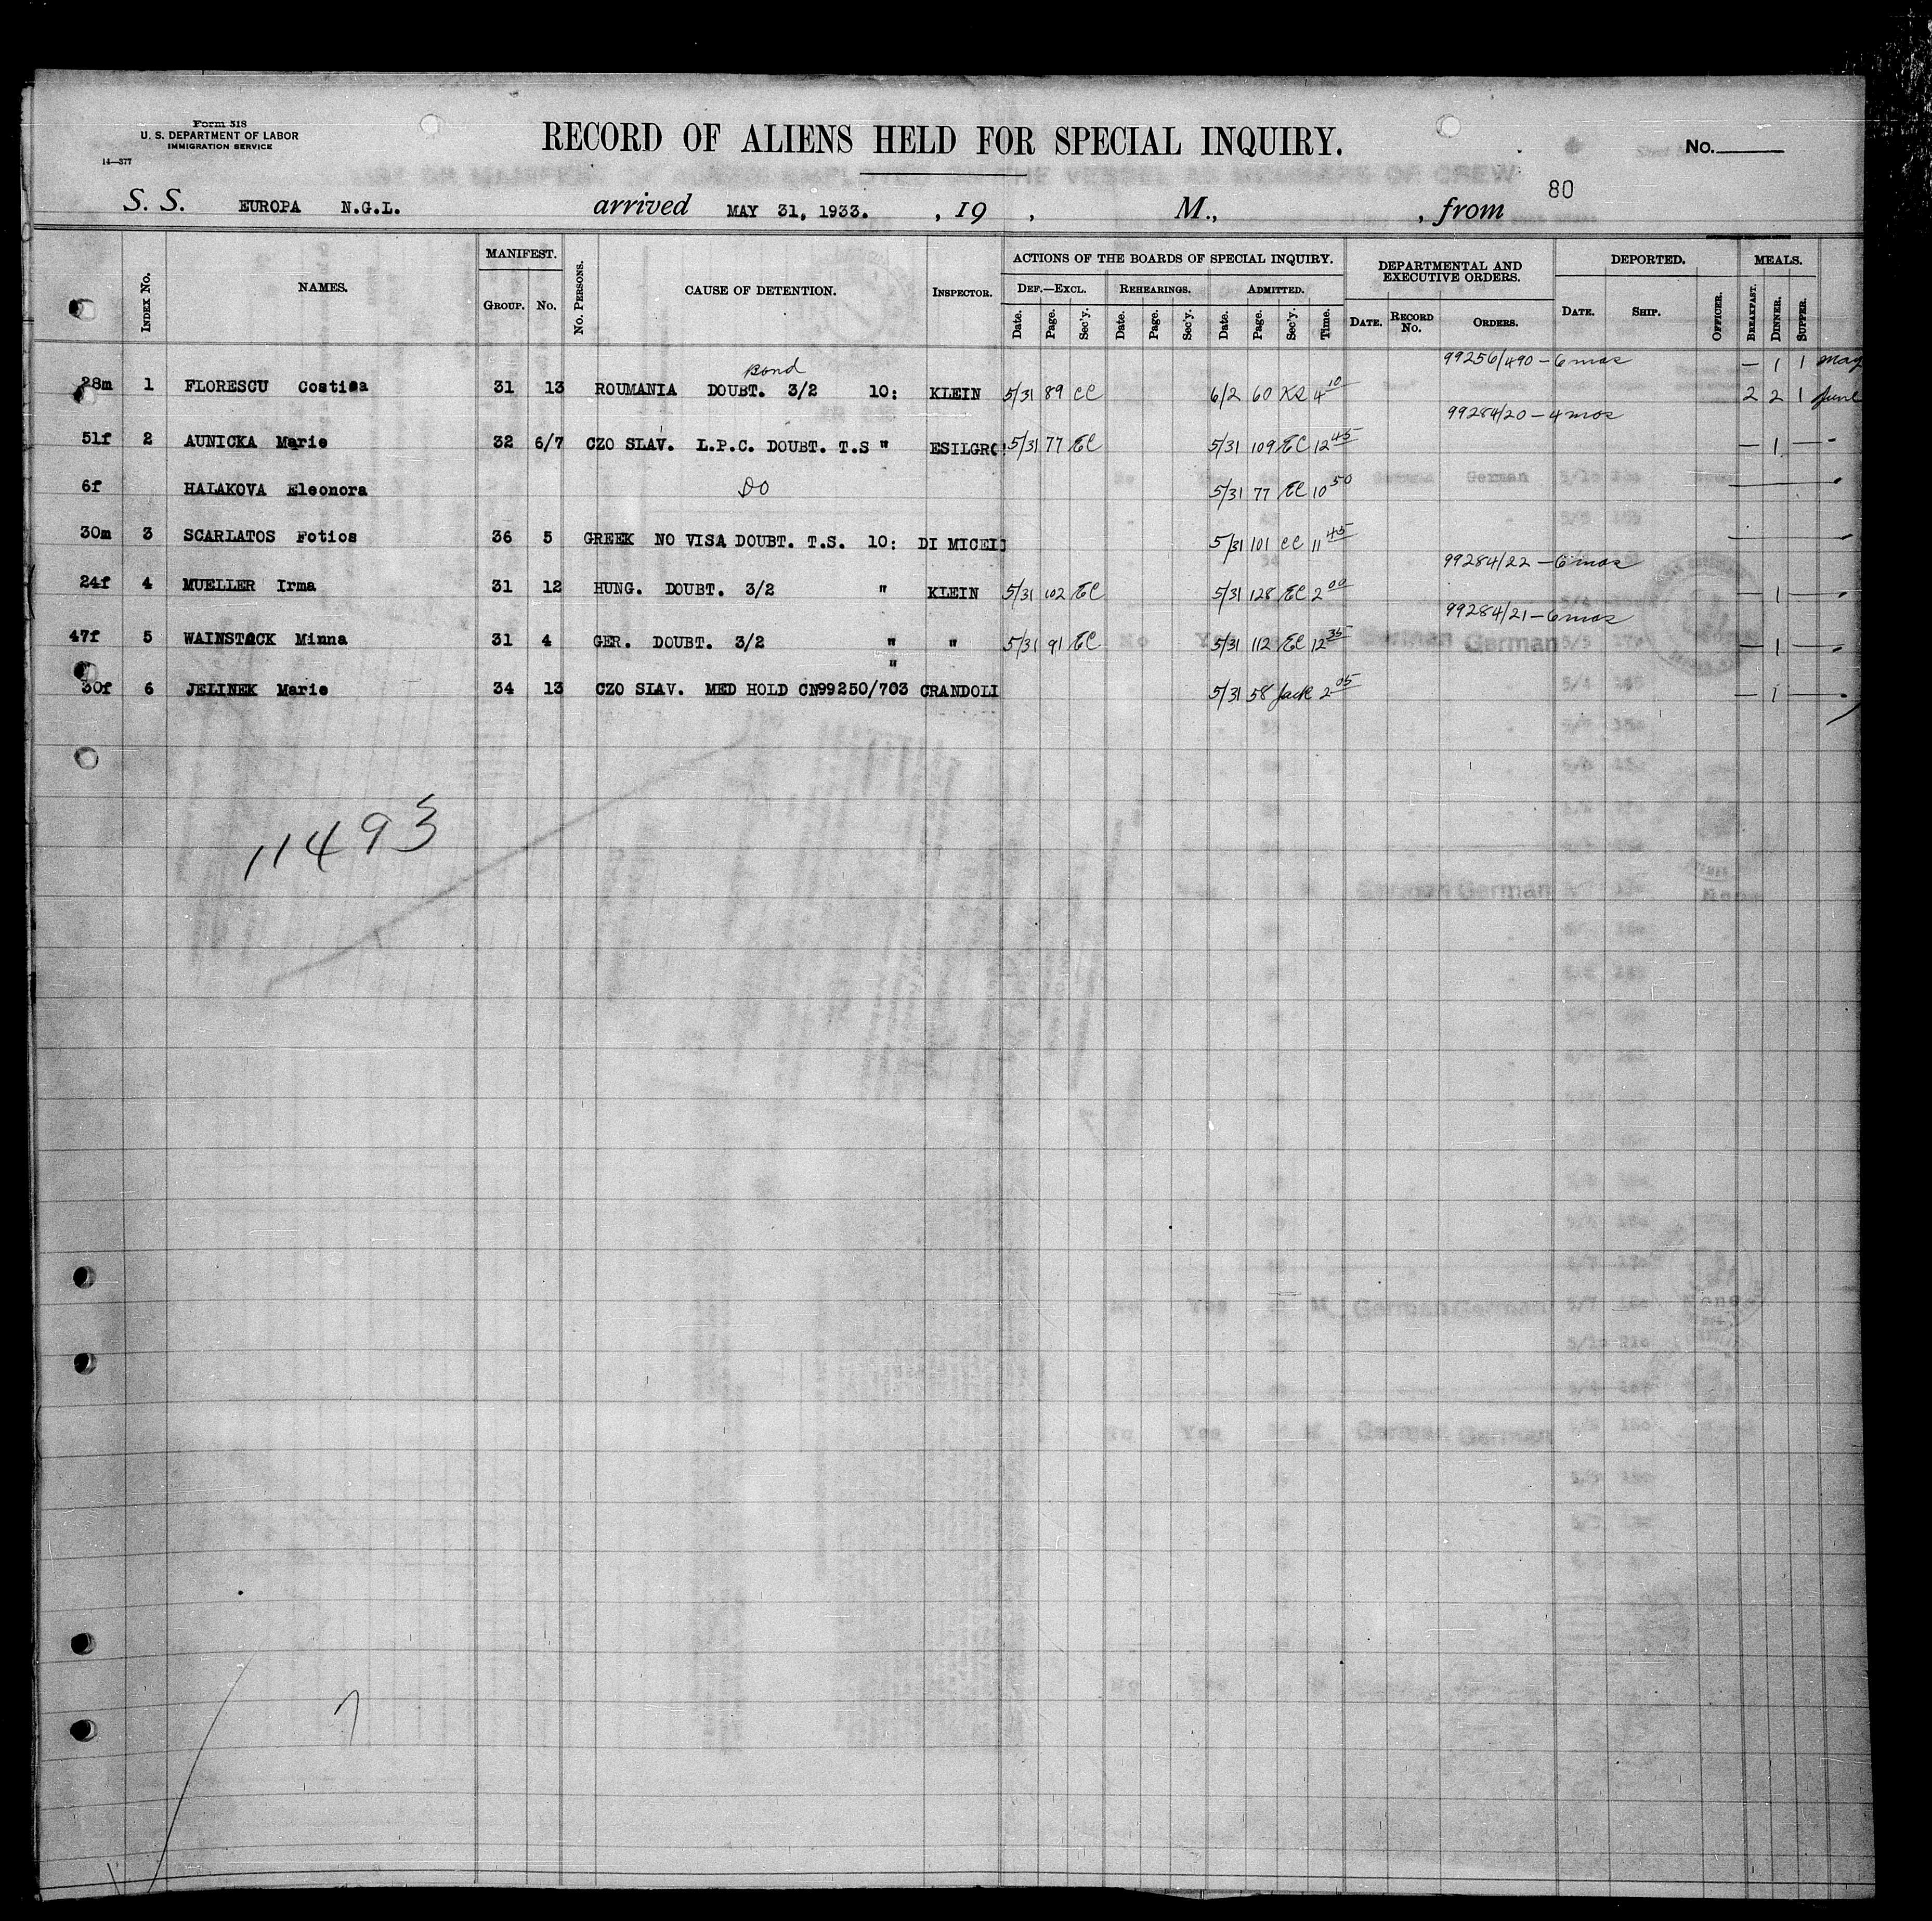 Form 518
U. S. DEPARTMENT OF LABOR
IMMIGRATION SERVICE
14—377
RECORD OF ALIENS HELD FOR SPECIAL INQUIRY.
No.
80
S. S. EUROPA N.G.L. arrived MAY 31, 1933. , 19 , M., , from
Index No. NAMES. MANIFEST. Group. No. No. Persons. CAUSE OF DETENTION. Inspector. ACTIONS OF THE BOARDS OF SPECIAL INQUIRY. DEPARTMENTAL AND EXECUTIVE ORDERS. DEPORTED. MEALS.
Def.—Excl. Rehearings. Admitted.
Date. Page. Sec'y. Date. Page. Sec'y. Date. Page. Sec'y. Time. Date. Record No. Orders. Date. Ship. Officer. Breakfast. Dinner. Supper.
Bond 99256/490 – 6 mos — 1 1 May
28m 1 FLORESCU Costica 31 13 ROUMANIA DOUBT. 3/2 10: KLEIN 5/31 89 CC 6/2 60 KS 4 10 2 2 1 June
99284/20 – 4 mos
51f 2 AUNICKA Marie 32 6/7 CZO SLAV. L.P.C. DOUBT. T.S " ESILGRO 5/31 77 EC 5/31 109 EC 12 45 — 1 —
6f HALAKOVA Eleonora DO 5/31 77 EC 10 50
30m 3 SCARLATOS Fotios 36 5 GREEK NO VISA DOUBT. T.S. 10: DI MICELI 5/31 101 CC 11 45
99284/22 – 6 mos
24f 4 MUELLER Irma 31 12 HUNG. DOUBT. 3/2 " KLEIN 5/31 102 EC 5/31 128 EC 2 00 — 1 —
99284/21 – 6 mos
47f 5 WAINSTOCK Minna 31 4 GER. DOUBT. 3/2 " " 5/31 91 EC 5/31 112 EC 12 35 — 1 —
"
30f 6 JELINEK Marie 34 13 CZO SLAV. MED HOLD CN99250/703 CRANDOLL 5/31 58 Jack 2 05 — 1 —
11493